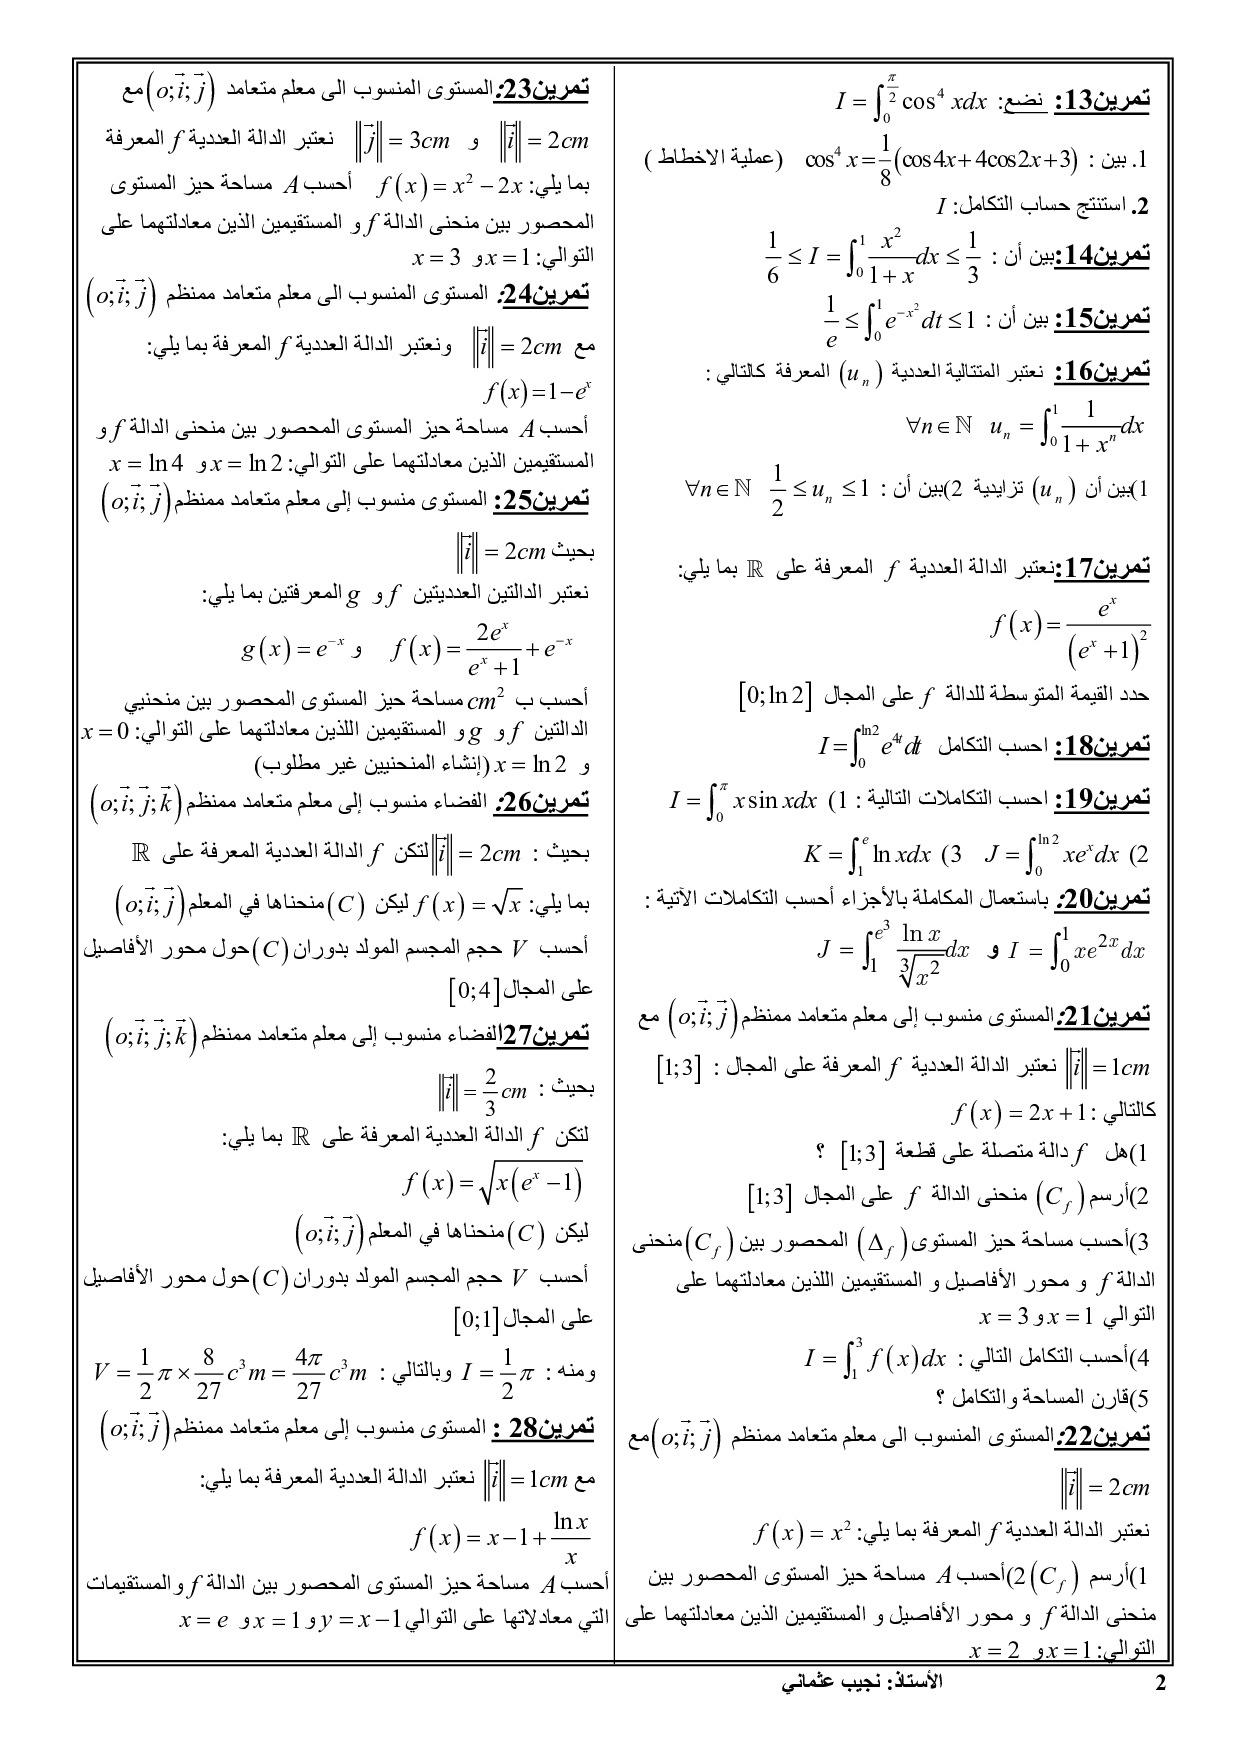 تمرين13: نضع: $I = \int_0^{\frac{\pi}{2}} \cos^4 x dx$
1. بين : $\cos^4 x = \frac{1}{8}(\cos 4x + 4\cos 2x + 3)$ (عملية الاخطاط )
2. استنتج حساب التكامل: $I$
تمرين14:بين أن : $\frac{1}{6} \le I = \int_0^1 \frac{x^2}{1+x} dx \le \frac{1}{3}$
تمرين15: بين أن : $\frac{1}{e} \le \int_0^1 e^{-x^2} dt \le 1$
تمرين16: نعتبر المتتالية العددية $(u_n)$ المعرفة كالتالي :
$\forall n \in \mathbb{N} \quad u_n = \int_0^1 \frac{1}{1+x^n} dx$
1)بين أن $(u_n)$ تزايدية 2)بين أن : $\forall n \in \mathbb{N} \quad \frac{1}{2} \le u_n \le 1$
تمرين17:نعتبر الدالة العددية $f$ المعرفة على $\mathbb{R}$ بما يلي:
$f(x) = \frac{e^x}{(e^x+1)^2}$
حدد القيمة المتوسطة للدالة $f$ على المجال $[0;\ln 2]$
تمرين18: احسب التكامل $I = \int_0^{\ln 2} e^{4t} dt$
تمرين19: احسب التكاملات التالية : 1) $I = \int_0^{\pi} x \sin x dx$
2) $J = \int_0^{\ln 2} xe^x dx$ 3) $K = \int_1^e \ln x dx$
تمرين20: باستعمال المكاملة بالأجزاء أحسب التكاملات الآتية :
$I = \int_0^1 xe^{2x} dx$ و $J = \int_1^{e^3} \frac{\ln x}{\sqrt[3]{x^2}} dx$
تمرين21:المستوى منسوب إلى معلم متعامد ممنظم $(o;\vec{i};\vec{j})$ مع
$\|\vec{i}\| = 1cm$ نعتبر الدالة العددية $f$ المعرفة على المجال : $[1;3]$
كالتالي : $f(x) = 2x+1$
1)هل $f$ دالة متصلة على قطعة $[1;3]$ ؟
2)أرسم $(C_f)$ منحنى الدالة $f$ على المجال $[1;3]$
3)أحسب مساحة حيز المستوى $(\Delta_f)$ المحصور بين $(C_f)$ منحنى
الدالة $f$ و محور الأفاصيل و المستقيمين اللذين معادلتهما على
التوالي $x=1$ و $x=3$
4)أحسب التكامل التالي : $I = \int_1^3 f(x)dx$
5)قارن المساحة والتكامل ؟
تمرين22:المستوى المنسوب الى معلم متعامد ممنظم $(o;\vec{i};\vec{j})$ مع
$\|\vec{i}\| = 2cm$
نعتبر الدالة العددية $f$ المعرفة بما يلي: $f(x) = x^2$
1)أرسم $(C_f)$ 2)أحسب $A$ مساحة حيز المستوى المحصور بين
منحنى الدالة $f$ و محور الأفاصيل و المستقيمين الذين معادلتهما على
التوالي: $x=1$ و $x=2$
تمرين23:المستوى المنسوب الى معلم متعامد $(o;\vec{i};\vec{j})$ مع
$\|\vec{i}\| = 2cm$ و $\|\vec{j}\| = 3cm$ نعتبر الدالة العددية $f$ المعرفة
بما يلي: $f(x) = x^2 - 2x$ أحسب $A$ مساحة حيز المستوى
المحصور بين منحنى الدالة $f$ و المستقيمين الذين معادلتهما على
التوالي: $x=1$ و $x=3$
تمرين24: المستوى المنسوب الى معلم متعامد ممنظم $(o;\vec{i};\vec{j})$
مع $\|\vec{i}\| = 2cm$ ونعتبر الدالة العددية $f$ المعرفة بما يلي:
$f(x) = 1 - e^x$
أحسب $A$ مساحة حيز المستوى المحصور بين منحنى الدالة $f$ و
المستقيمين الذين معادلتهما على التوالي: $x = \ln 2$ و $x = \ln 4$
تمرين25: المستوى منسوب إلى معلم متعامد ممنظم $(o;\vec{i};\vec{j})$
بحيث $\|\vec{i}\| = 2cm$
نعتبر الدالتين العدديتين $f$ و $g$ المعرفتين بما يلي:
$f(x) = \frac{2e^x}{e^x+1} + e^{-x}$ و $g(x) = e^{-x}$
أحسب ب $cm^2$ مساحة حيز المستوى المحصور بين منحنيي
الدالتين $f$ و $g$ و المستقيمين اللذين معادلتهما على التوالي: $x=0$
و $x = \ln 2$ (إنشاء المنحنيين غير مطلوب)
تمرين26: الفضاء منسوب إلى معلم متعامد ممنظم $(o;\vec{i};\vec{j};\vec{k})$
بحيث : $\|\vec{i}\| = 2cm$ لتكن $f$ الدالة العددية المعرفة على $\mathbb{R}$
بما يلي: $f(x) = \sqrt{x}$ ليكن $(C)$ منحناها في المعلم $(o;\vec{i};\vec{j})$
أحسب $V$ حجم المجسم المولد بدوران $(C)$ حول محور الأفاصيل
على المجال $[0;4]$
تمرين27الفضاء منسوب إلى معلم متعامد ممنظم $(o;\vec{i};\vec{j};\vec{k})$
بحيث : $\|\vec{i}\| = \frac{2}{3}cm$
لتكن $f$ الدالة العددية المعرفة على $\mathbb{R}$ بما يلي:
$f(x) = \sqrt{x(e^x-1)}$
ليكن $(C)$ منحناها في المعلم $(o;\vec{i};\vec{j})$
أحسب $V$ حجم المجسم المولد بدوران $(C)$ حول محور الأفاصيل
على المجال $[0;1]$
ومنه : $I = \frac{1}{2}\pi$ وبالتالي : $V = \frac{1}{2}\pi \times \frac{8}{27}c^3m = \frac{4\pi}{27}c^3m$
تمرين28 : المستوى منسوب إلى معلم متعامد ممنظم $(o;\vec{i};\vec{j})$
مع $\|\vec{i}\| = 1cm$ نعتبر الدالة العددية المعرفة بما يلي:
$f(x) = x - 1 + \frac{\ln x}{x}$
أحسب $A$ مساحة حيز المستوى المحصور بين الدالة $f$ والمستقيمات
التي معادلاتها على التوالي $y = x-1$ و $x=1$ و $x=e$
الأستاذ: نجيب عثماني 2